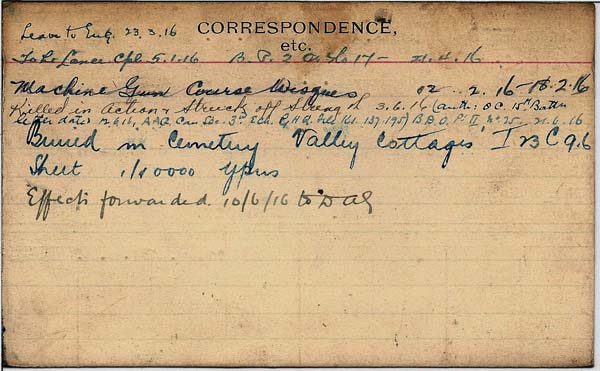 Leave to Eng. 23.3.16
CORRESPONDENCE,
etc.
To be Lance Cpl 5.1.16 B. P. 2 O. No 17- 21.4.16
Machine Gun Course Wisques 12..2.16-18.2.16
Killed in action & Struck off Strength 3.6.16 (auth: O C. 15th Battn
letter dated 12.6.16, AAG. Can Sec. 3rd Ech. G.H.Q. B.D.O. Pt II, No 25- 21.6.16
Buried in Cemetery Valley Cottages I 23 C 9.6
Sheet 1/10000 Ypres
Effects forwarded 10/6/16 to D A G